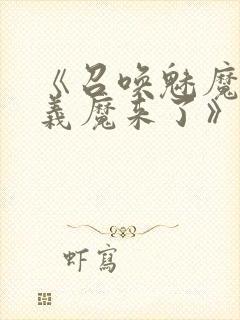 《召唤魅魔
義魔来了》
虾寫